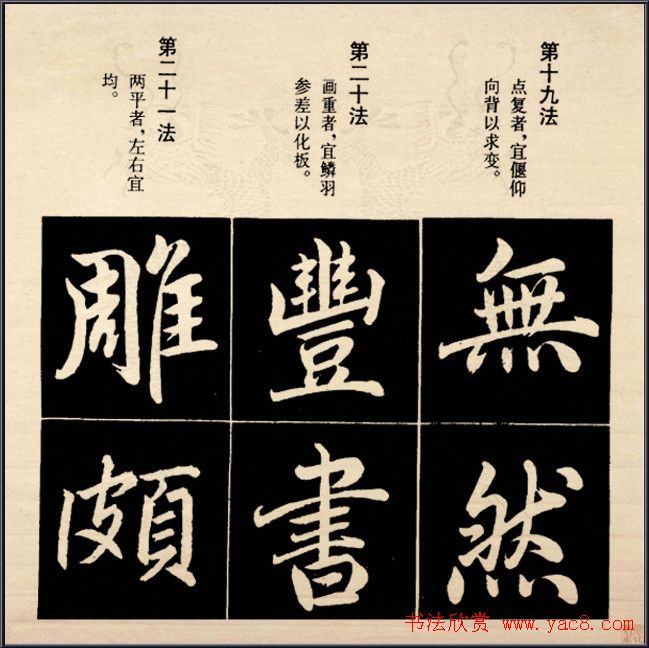 第十九法
点复者，宜偃仰
向背以求变。
第二十法
画重者，宜鳞羽
参差以化板。
第二十一法
两平者，左右宜
均。
無
然
豐
書
雕
頗
书法欣赏 www.yac8.com